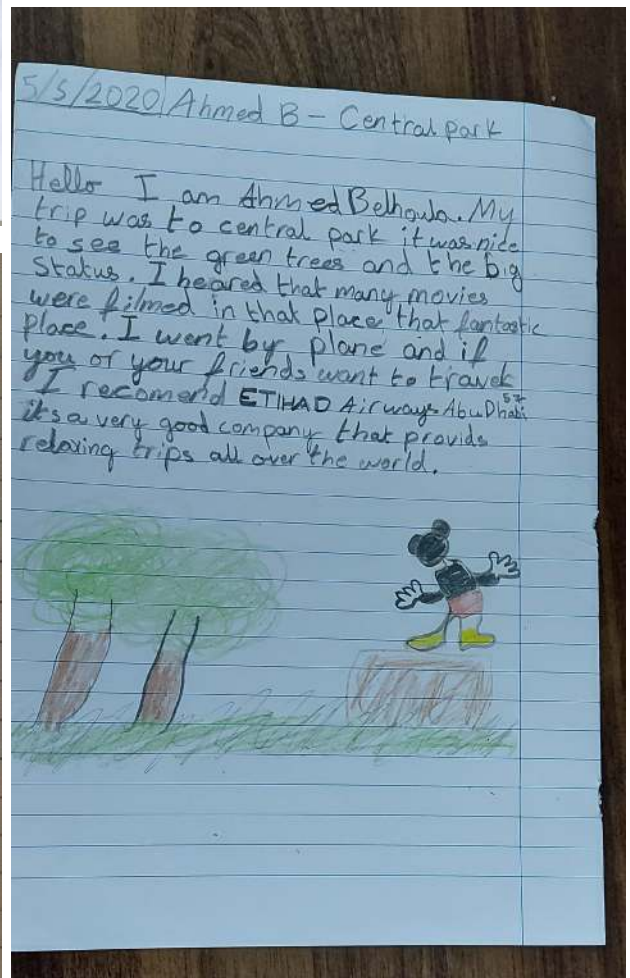 5/5/2020 Ahmed B - Central park
Hello I am Ahmed Belhoula. My
trip was to central park it was nice
to see the green trees and the big
Status. I heared that many movies
were filmed in that place that fantastic
place. I went by plane and if
you or your friends want to travel
I recomend ETIHAD Airways Abu Dhabi
it's a very good company that provids
relaxing trips all over the world.